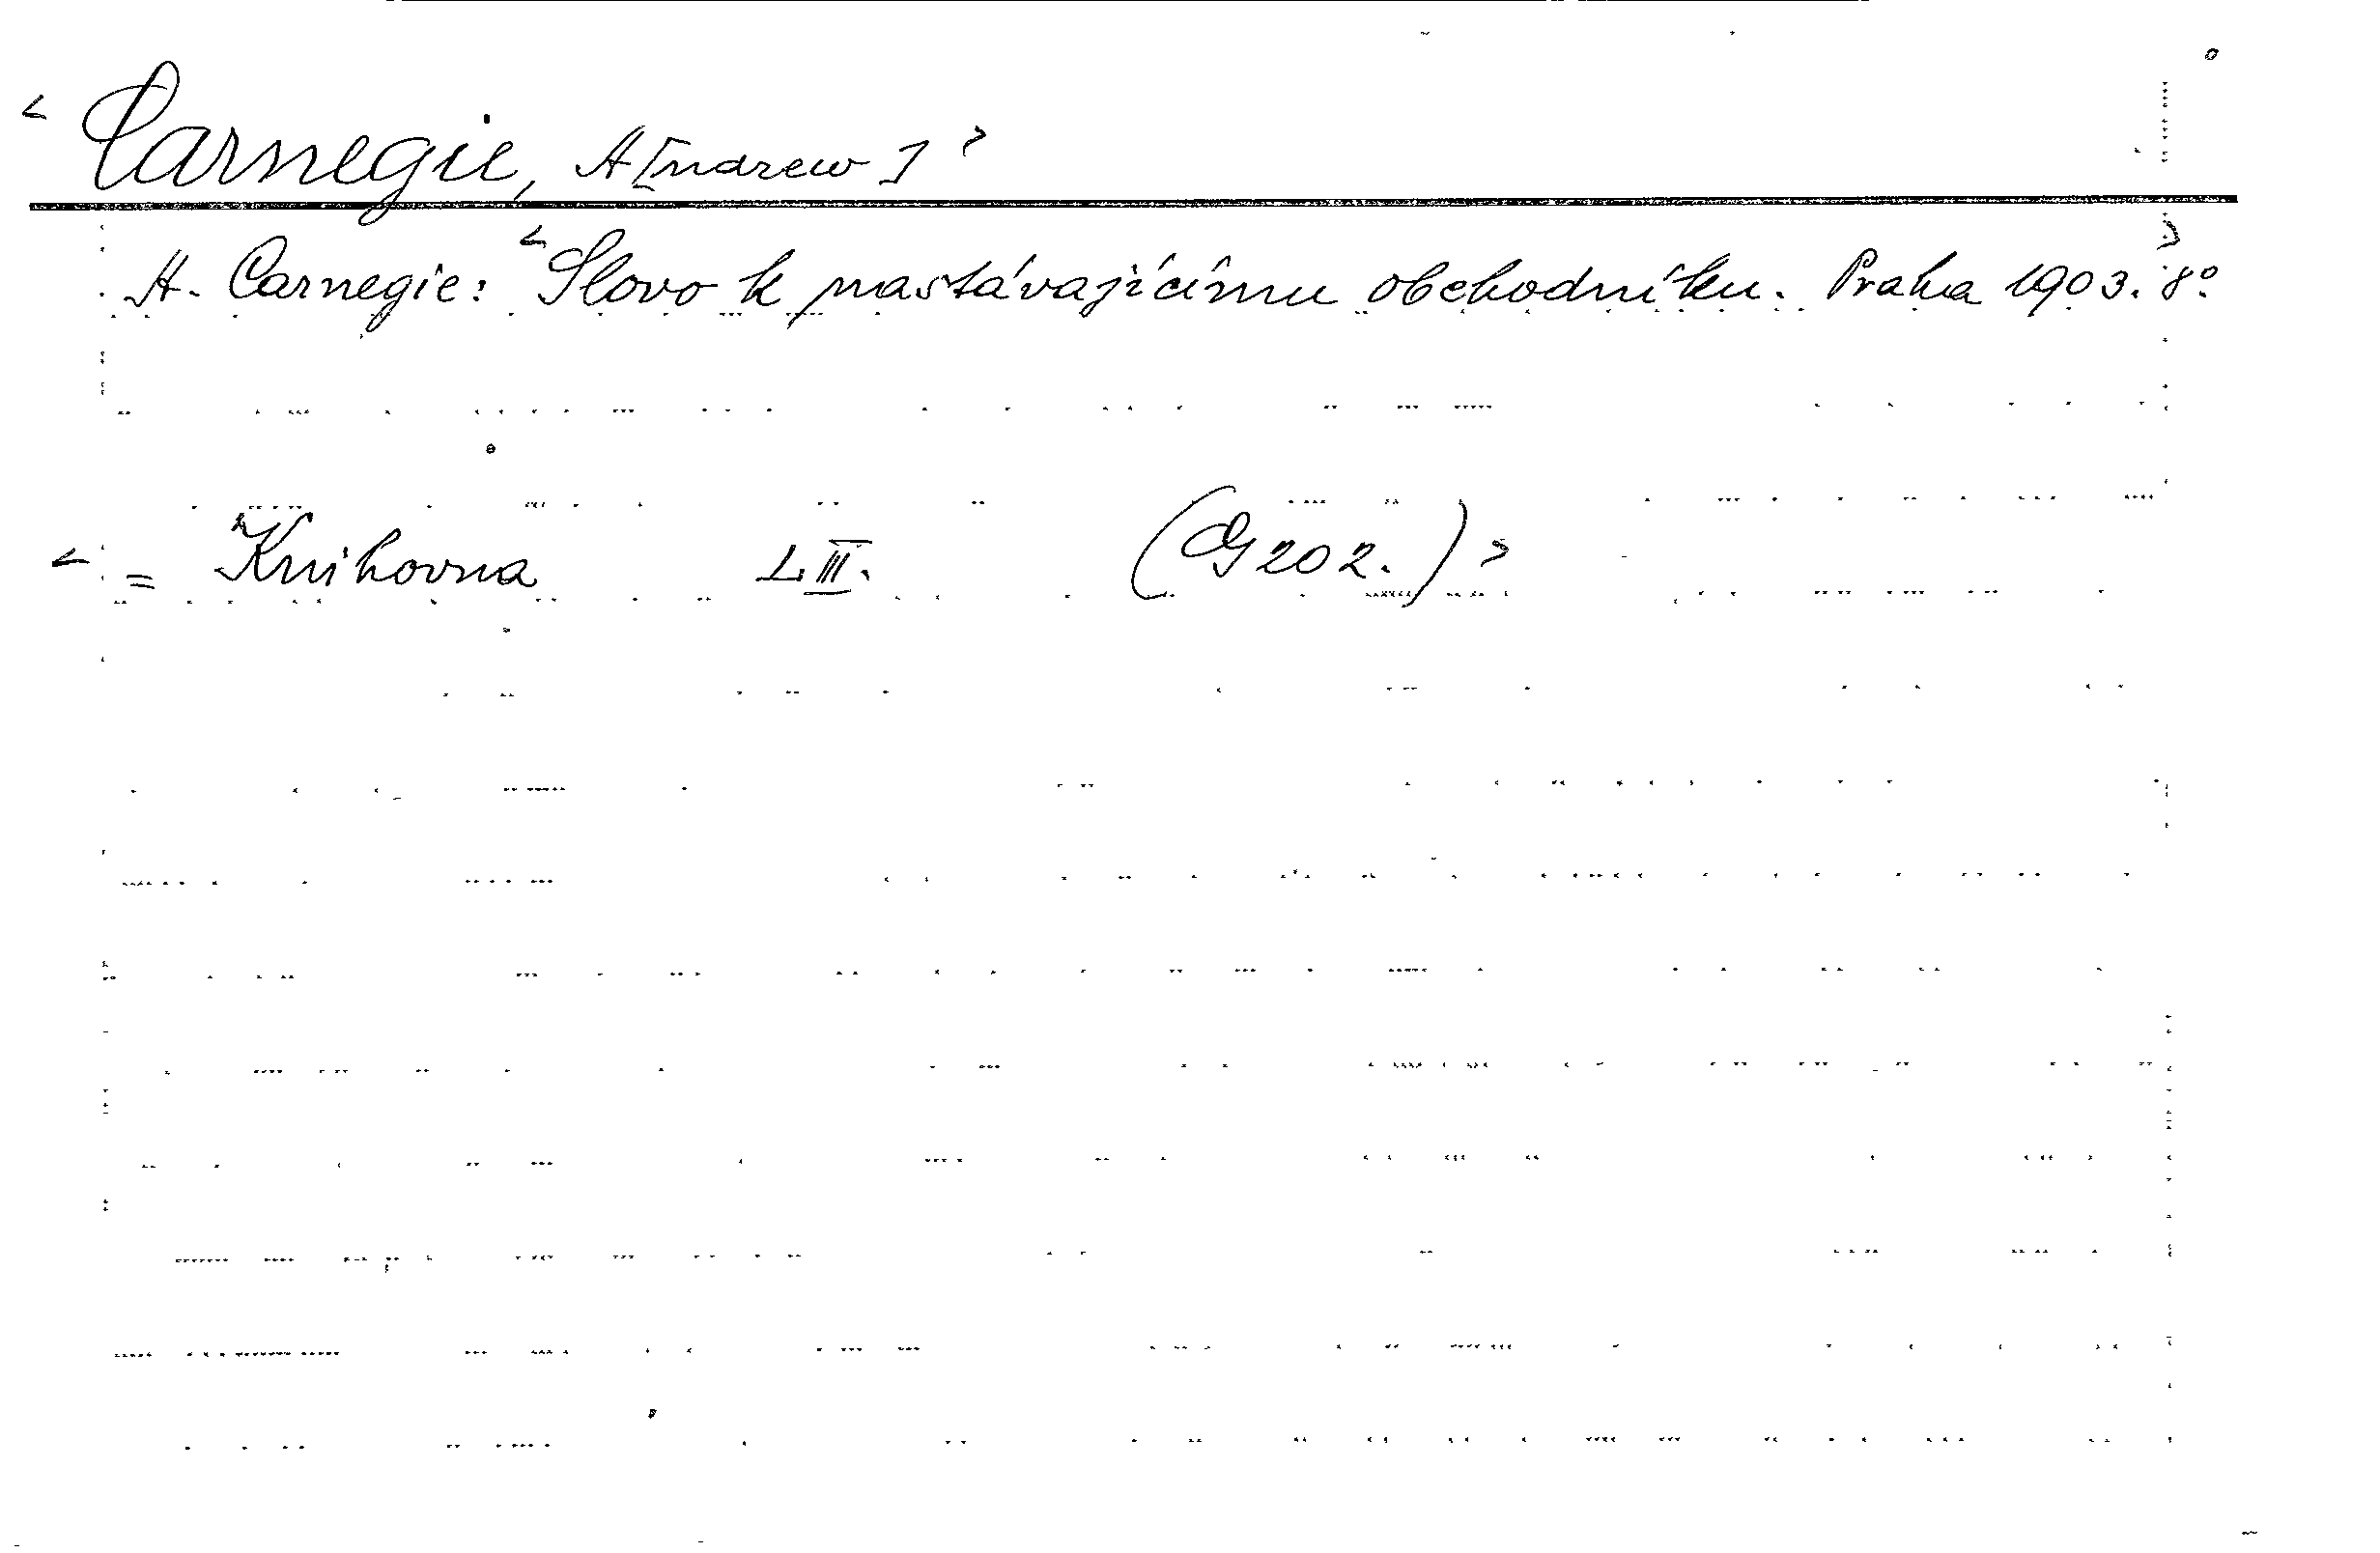 < Carnegie, A[ndrew] >
A. Carnegie: < Slovo k nastávajícímu obchodníku. Praha 1903. 8°. >
< = Knihovna L III. (G 202.) >